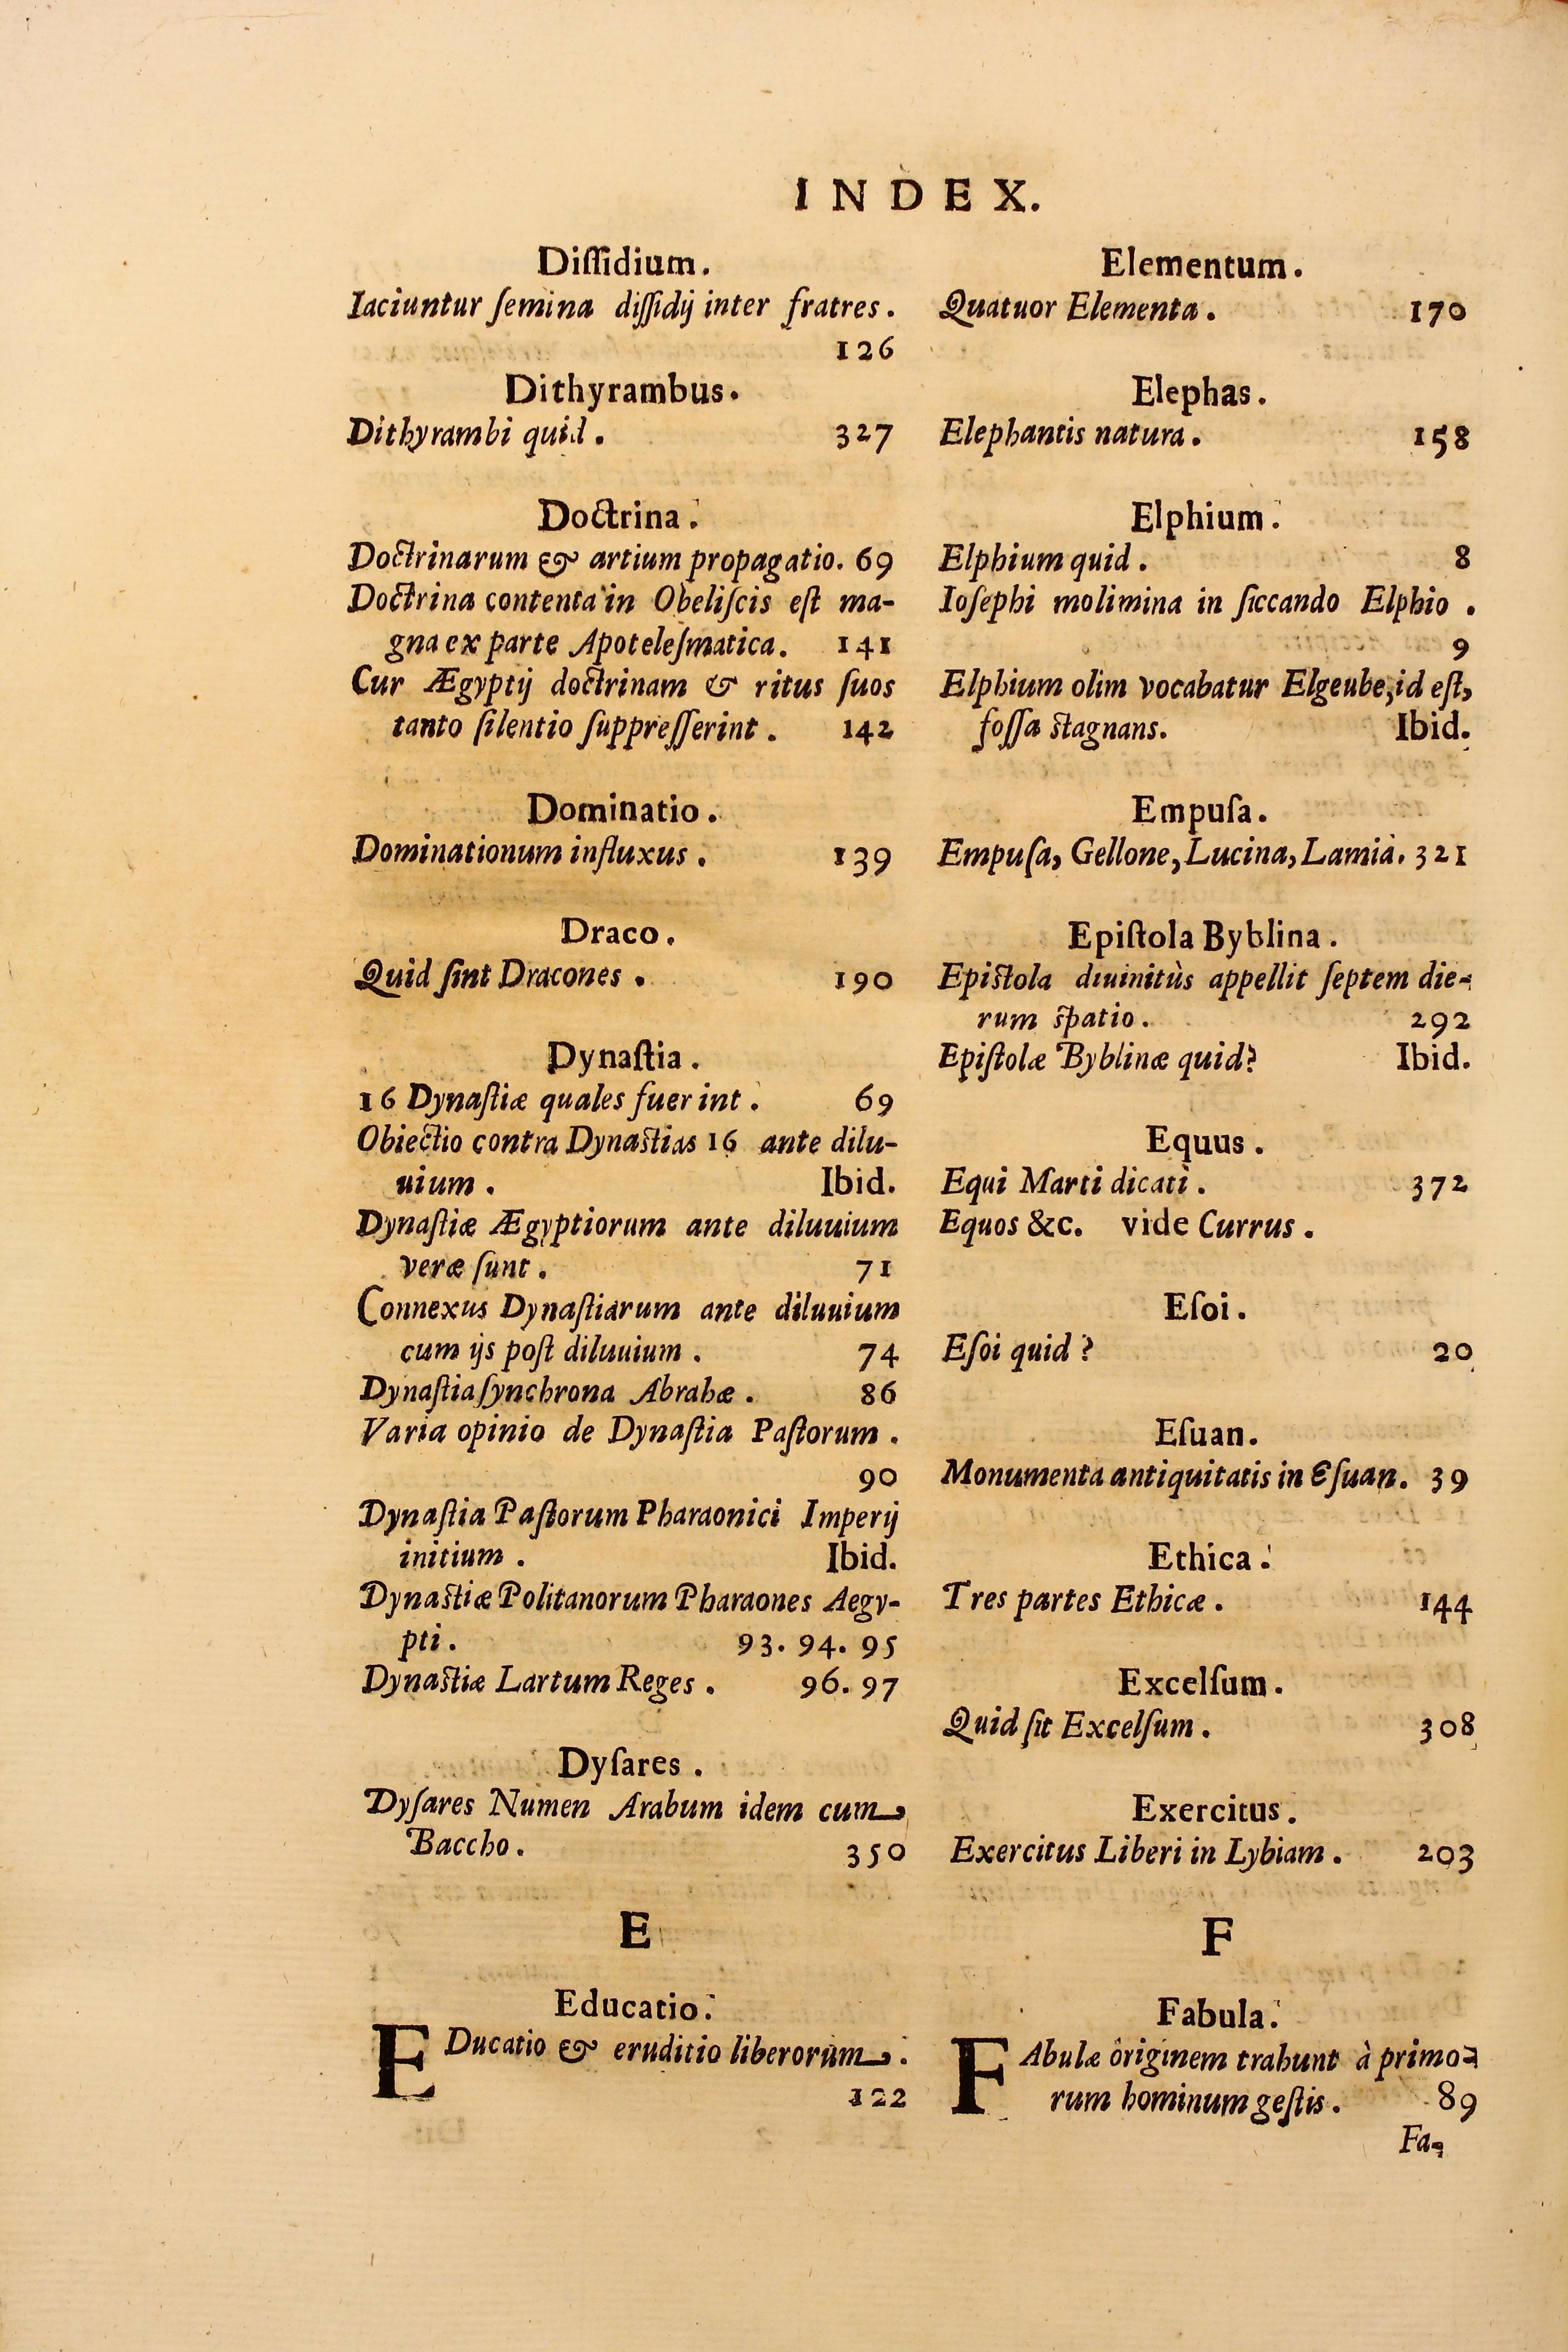 INDEX.
Diſſidium.
Iaciuntur ſemina diſſidij inter fratres.
126
Dithyrambus.
Dithyrambi quid. 327
Doctrina.
Doctrinarum & artium propagatio. 69
Doctrina contenta in Obeliſcis eſt ma-
gna ex parte Apoteleſmatica. 141
Cur Ægyptij doctrinam & ritus ſuos
tanto ſilentio ſuppreſſerint. 142
Dominatio.
Dominationum influxus. 139
Draco.
Quid ſint Dracones. 190
Dynaſtia.
16 Dynaſtiæ quales fuerint. 69
Obiectio contra Dynaſtias 16 ante dilu-
uium. Ibid.
Dynaſtiæ Ægyptiorum ante diluuium
veræ ſunt. 71
Connexus Dynaſtiarum ante diluuium
cum ijs poſt diluuium. 74
Dynaſtia ſynchrona Abrahæ. 86
Varia opinio de Dynaſtia Paſtorum.
90
Dynaſtia Paſtorum Pharaonici Imperij
initium. Ibid.
Dynaſtiæ Politanorum Pharaones Aegy-
pti. 93. 94. 95
Dynaſtiæ Lartum Reges. 96. 97
Dyſares.
Dyſares Numen Arabum idem cum
Baccho. 350
E
Educatio.
EDucatio & eruditio liberorum.
122
Elementum.
Quatuor Elementa. 170
Elephas.
Elephantis natura. 158
Elphium.
Elphium quid. 8
Ioſephi molimina in ſiccando Elphio.
9
Elphium olim vocabatur Elgeube, id eſt,
foſſa ſtagnans. Ibid.
Empuſa.
Empuſa, Gellone, Lucina, Lamia. 321
Epiſtola Byblina.
Epiſtola diuinitùs appellit ſeptem die-
rum ſpatio. 292
Epiſtolæ Byblinæ quid? Ibid.
Equus.
Equi Marti dicati. 372
Equos &c. vide Currus.
Eſoi.
Eſoi quid? 20
Eſuan.
Monumenta antiquitatis in Eſuan. 39
Ethica.
Tres partes Ethicæ. 144
Excelſum.
Quid ſit Excelſum. 308
Exercitus.
Exercitus Liberi in Lybiam. 203
F
Fabula.
FAbulæ originem trahunt à primo-
rum hominum geſtis. 89
Fa-